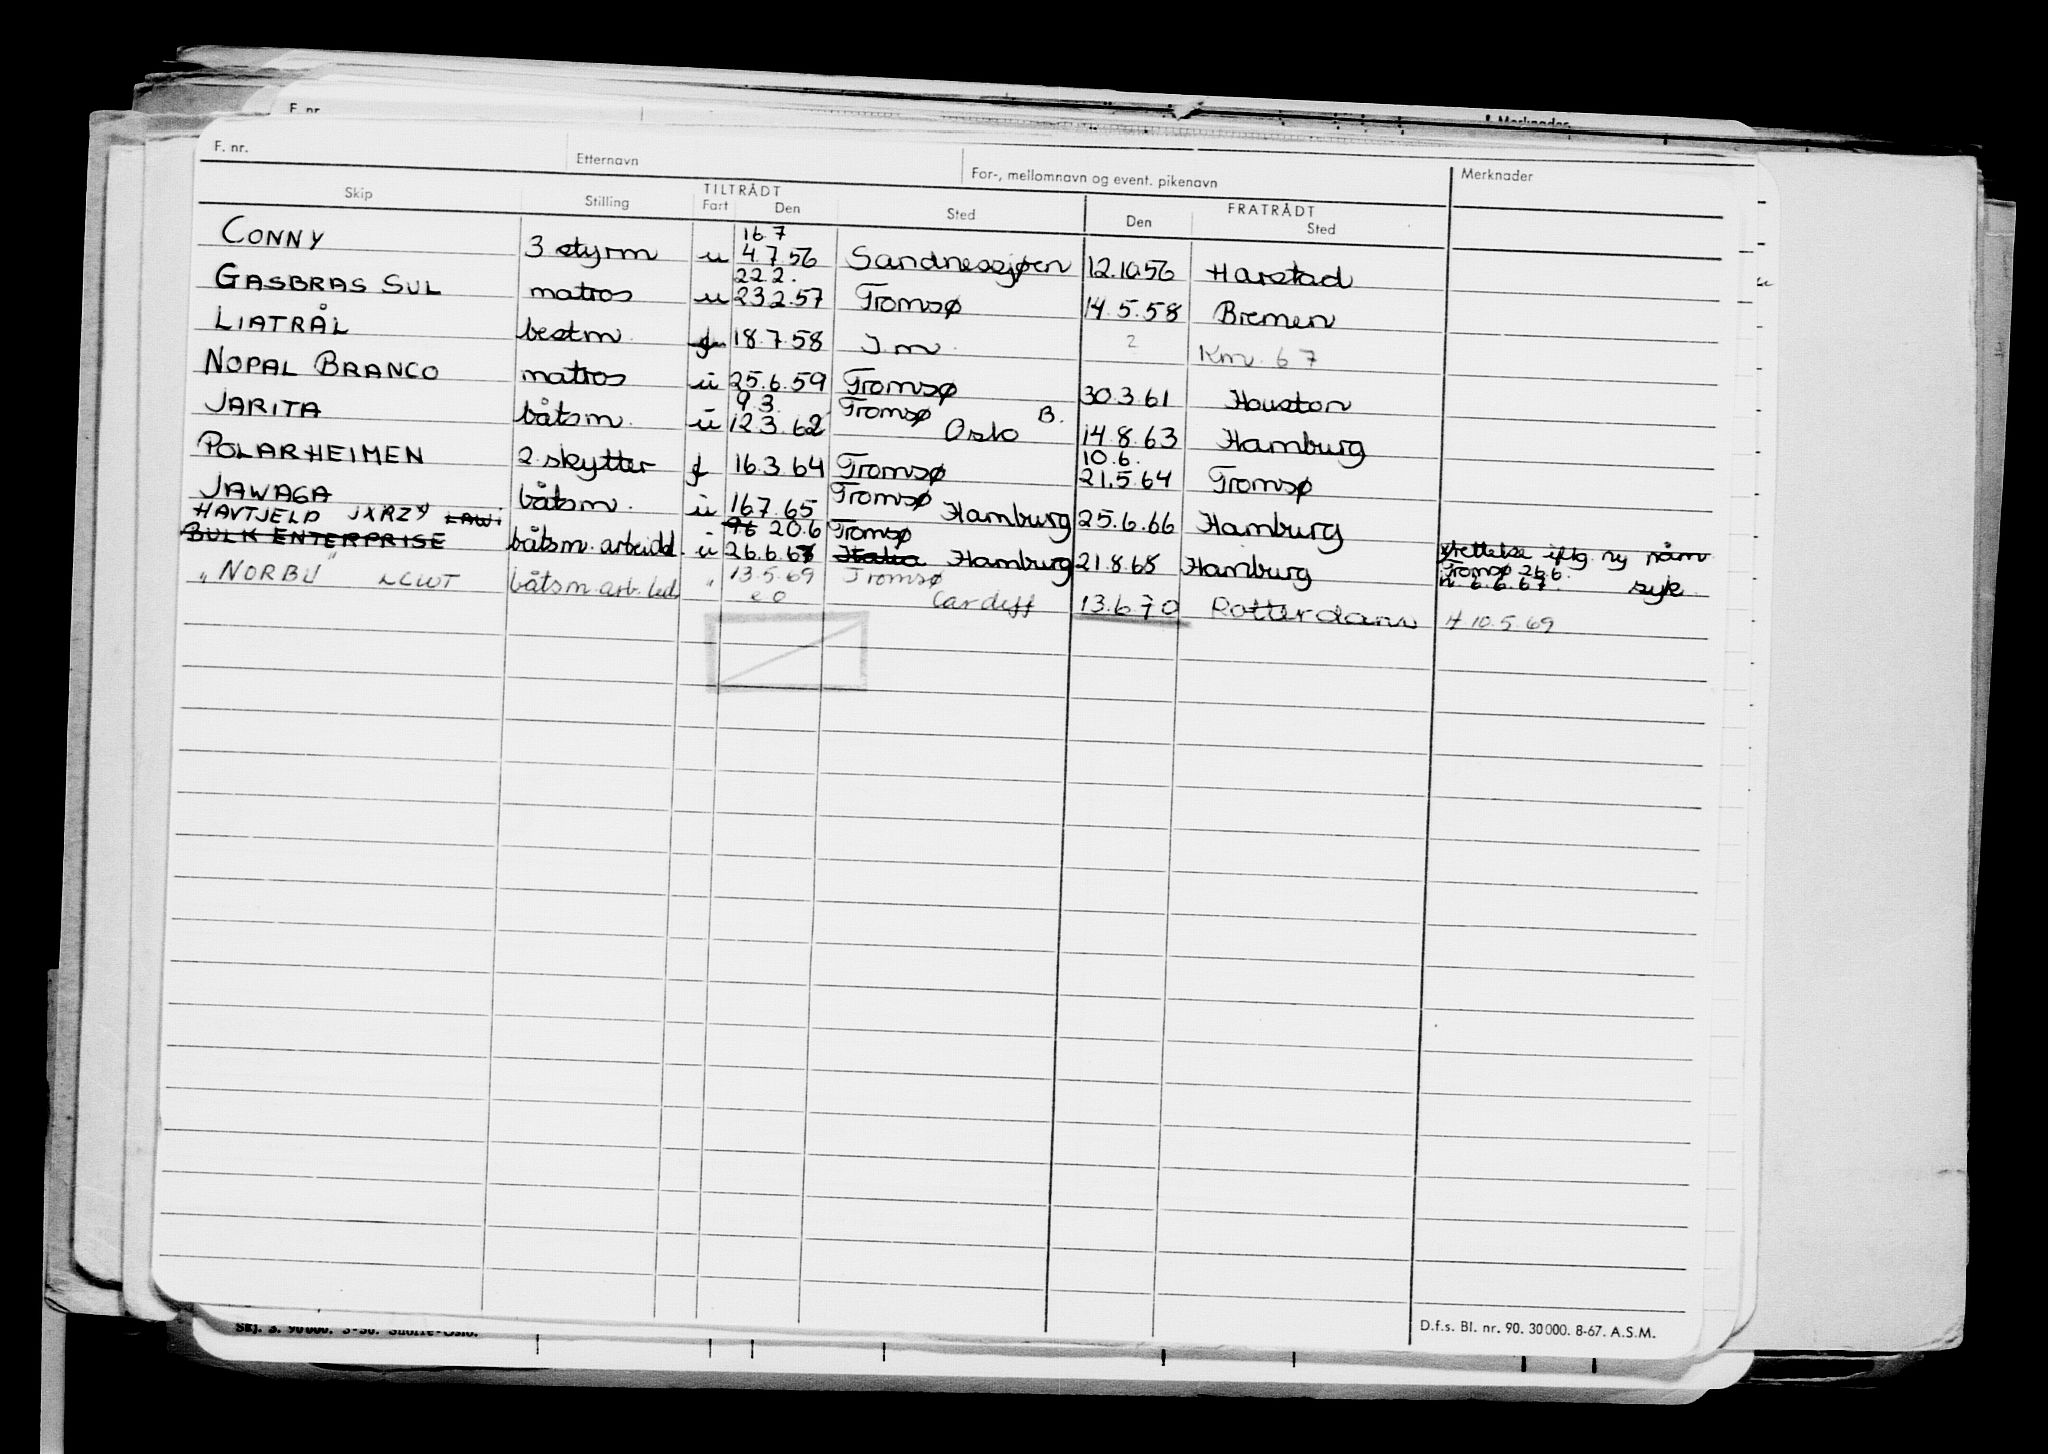 F. nr.
Merknader
F. nr. Etternavn For-, mellomnavn og event. pikenavn Merknader
Skip Stilling TILTRÅDT Fart Den Sted FRATRÅDT Den Sted
16.7
CONNY 3 styrm u 4.7.56 Sandnessjøen 12.10.56 Harstad
22.2.
GASBRAS SUL matros u 23.2.57 Tromsø 14.5.58 Bremen
LIATRÅL bestm. 18.7.58 I.m. 2 Km. 67
NOPAL BRANCO matros u 25.6.59 Tromsø 30.3.61 Houston
9.3. Tromsø B.
JARITA båtsm. u 12.3.62 Oslo 14.8.63 Hamburg
10.6.
POLARHEIMEN 2. skytter f 16.3.64 Tromsø 21.5.64 Tromsø
Tromsø
JAWAGA båtsm. u 16.7.65 Hamburg 25.6.66 Hamburg
HAVTJELD JXRZY LAWI 20.6 Tromsø
BULK ENTERPRISE båtsm. arbeidd. u 26.6.67 Italia Hamburg 21.8.68 Hamburg rettelse iflg. ny
Tromsø 26.6.
6.6.67. syk.
"NORBU" LCWT båtsm. arb. led. " 13.5.69 Tromsø
20 Cardiff 13.6.70 Rotterdam H 10.5.69
D.f.s. Bl. nr. 90. 30000. 8-67. A.S.M.
Skj. 3. 90000. 3-56.